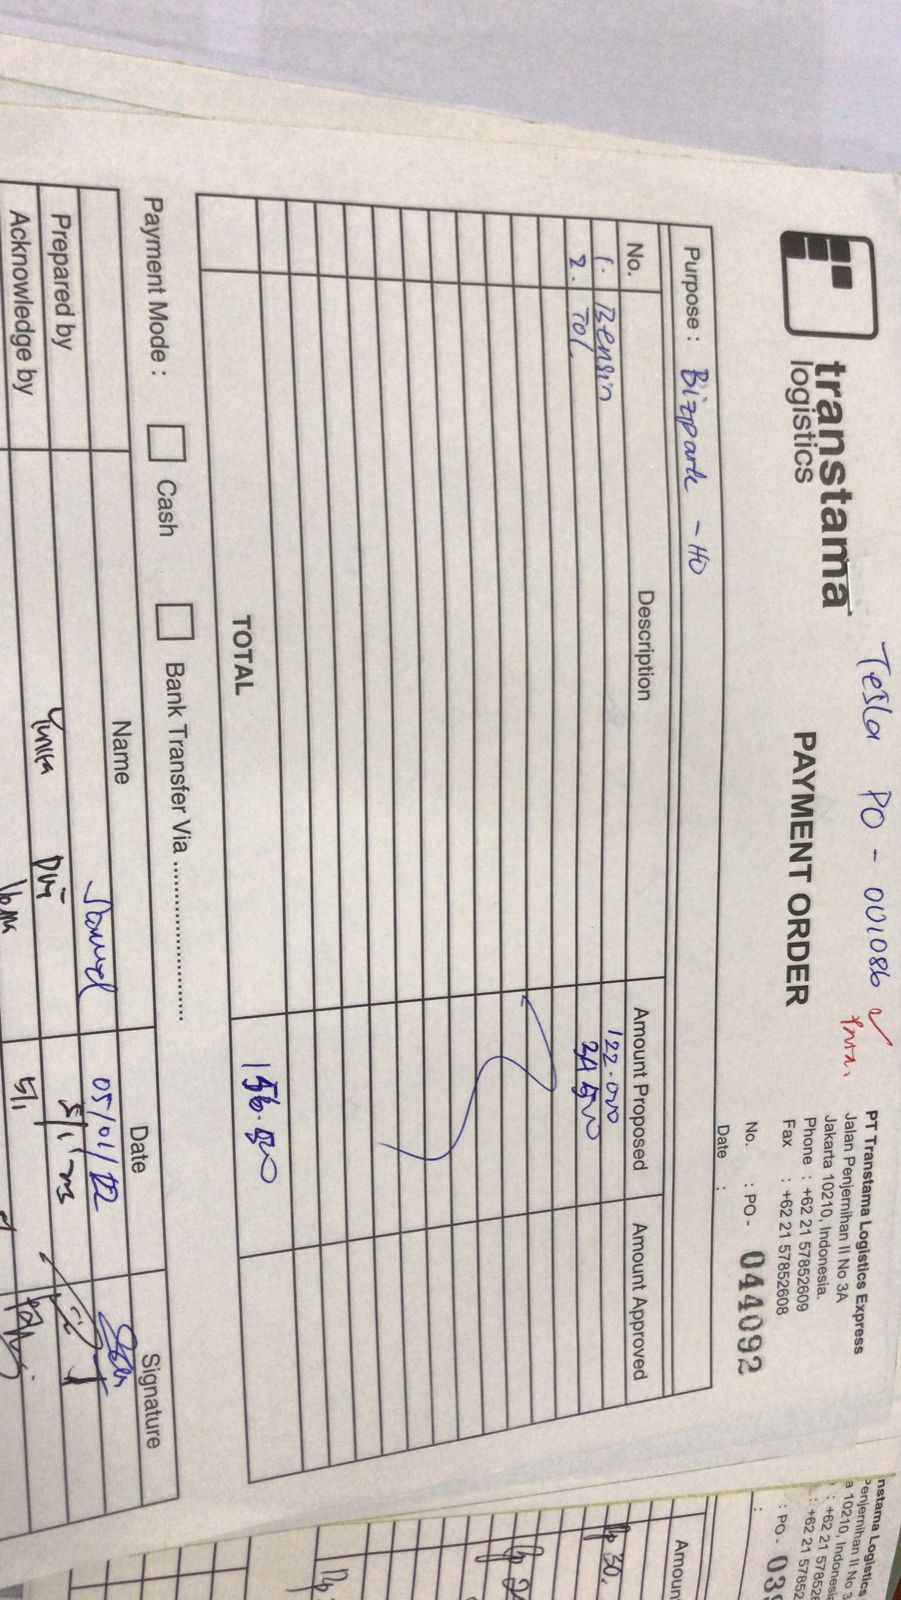 Tesla PO - 001086
transtama
logistics
PAYMENT ORDER
PT Transtama Logistics Express
Jalan Penjernihan II No 3A
Jakarta 10210, Indonesia.
Phone : +62 21 57852609
Fax : +62 21 57852608
No. : PO - 044092
Date :
Purpose : Bizpark - HO
No. Description Amount Proposed Amount Approved
1. Bensin 122.000
2. Tol 34.500
TOTAL 156.500
Payment Mode : Cash Bank Transfer Via ........................
Name Date Signature
05/01/22
Prepared by Yunita Dwi 5/1
Acknowledge by 5/1
nstama Logistics
Penjernihan II No 3
a 10210, Indonesia
: +62 21 5785
: +62 21 57852
: PO - 03
:
Amoun
Rp 30.
Rp 2
Rp